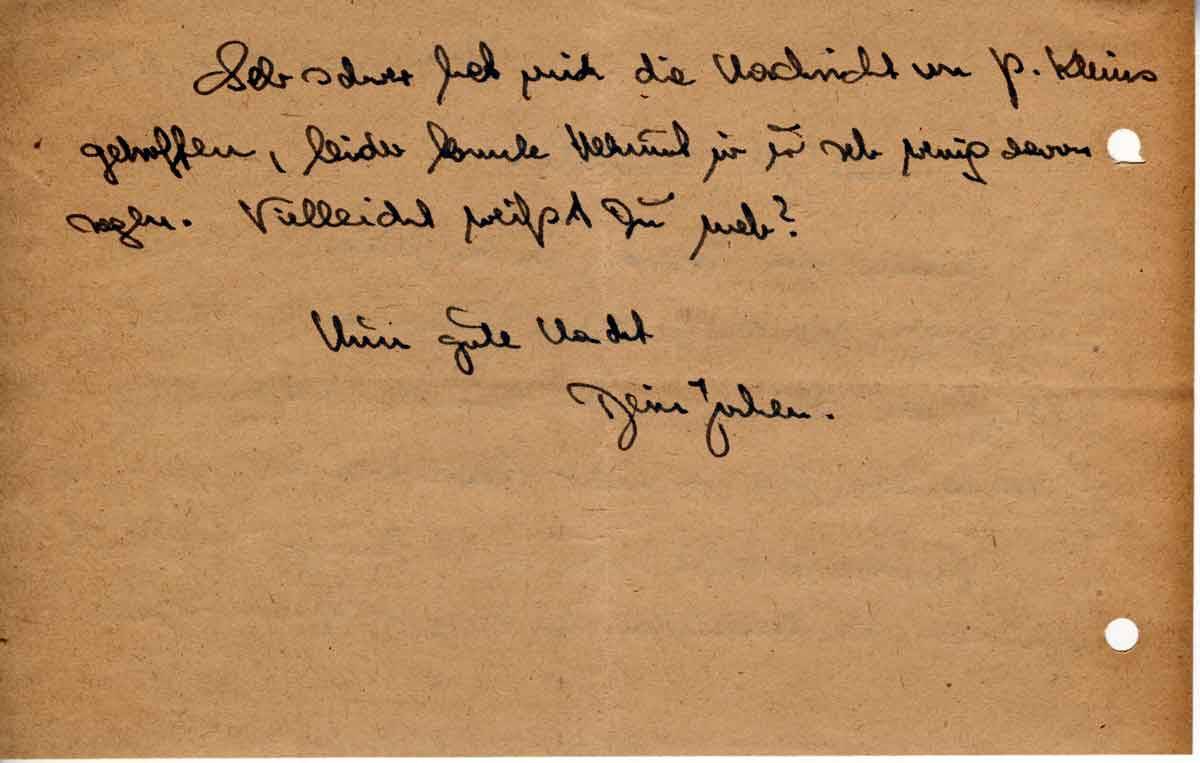 Sehr schwer hat mich die Nachricht von P. Kleins
getroffen, leider konnte Helmut sehr wenig davon
sagen. Vielleicht weißt Du mehr?
Nun gute Nacht
Dein Jochen.